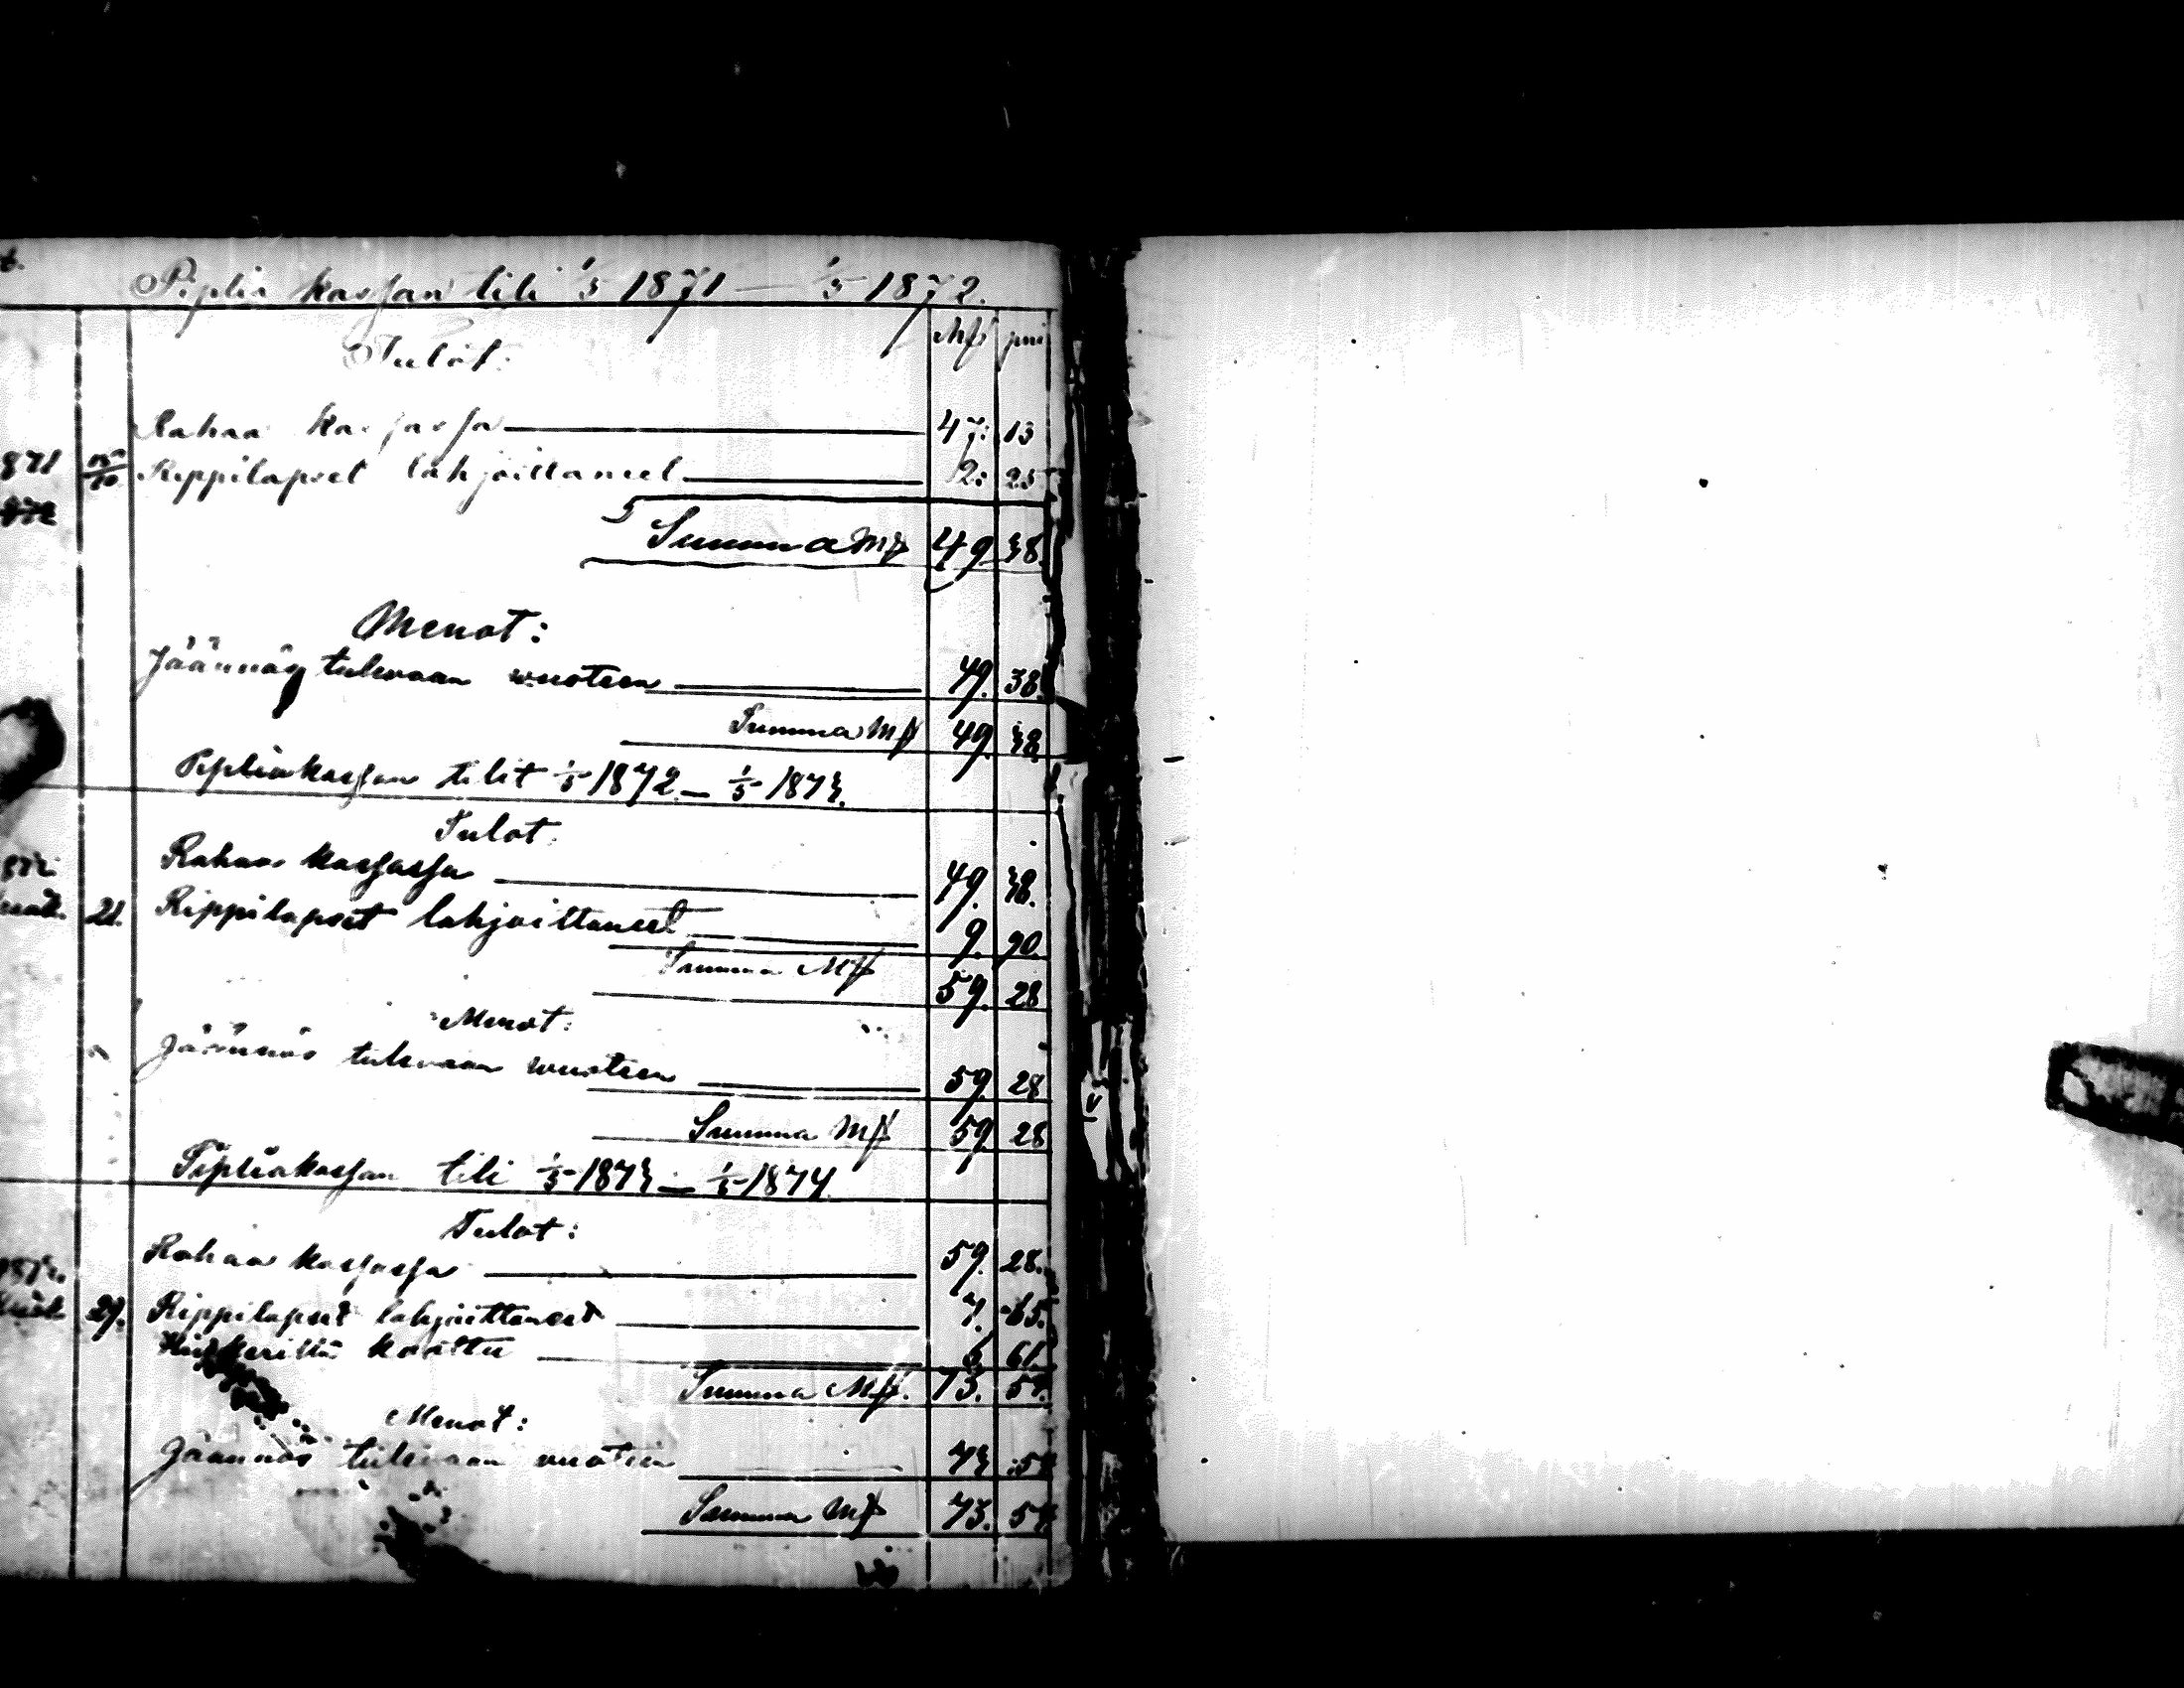 Piplia kassan tili 1/5 1871 — 1/5 1872.
Mk pni
Tulot:
Rahaa kassassa 47: 13
871 15/10 Rippilapset lahjoittaneet 2: 25
872
Summa Mk 49 38.
Menot:
Jäännös tulevaan vuoteen 49. 38.
Summa Mk 49. 38.
Pipliakassan tilit 1/5 1872 — 1/5 1873.
Tulot.
872. Rahaa kassassa 49. 38.
21. Rippilapset lahjoittaneet 9. 90.
Summa Mk 59. 28
Menot:
Jäännös tulevaan vuoteen 59. 28
Summa Mk 59. 28
Pipliakassan tili 1/5 1873 — 1/5 1874
Tulot:
1873. Rahaa kassassa 59. 28.
29. Rippilapset lahjoittaneet 7. 65.
koottu 6. 61.
Summa Mk. 73. 54.
Menot:
Jäännös tulevaan vuoteen 73 54
Summa Mk 73. 54